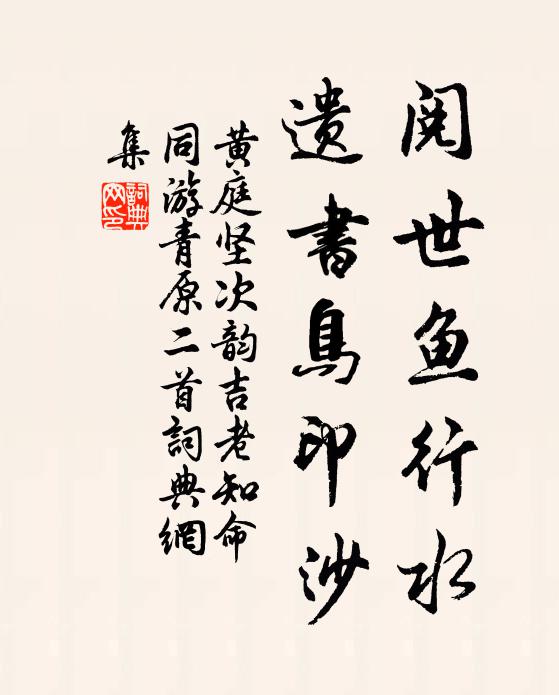 阅世鱼行水
遗書鳥印沙
黄庭坚次韵吉老知命
同游青原二首詞典網
集
詞典
网印